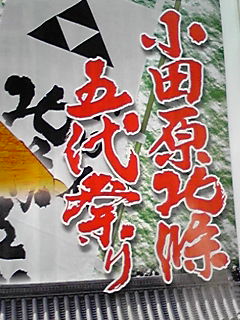 小田原北條
五代祭り
北条